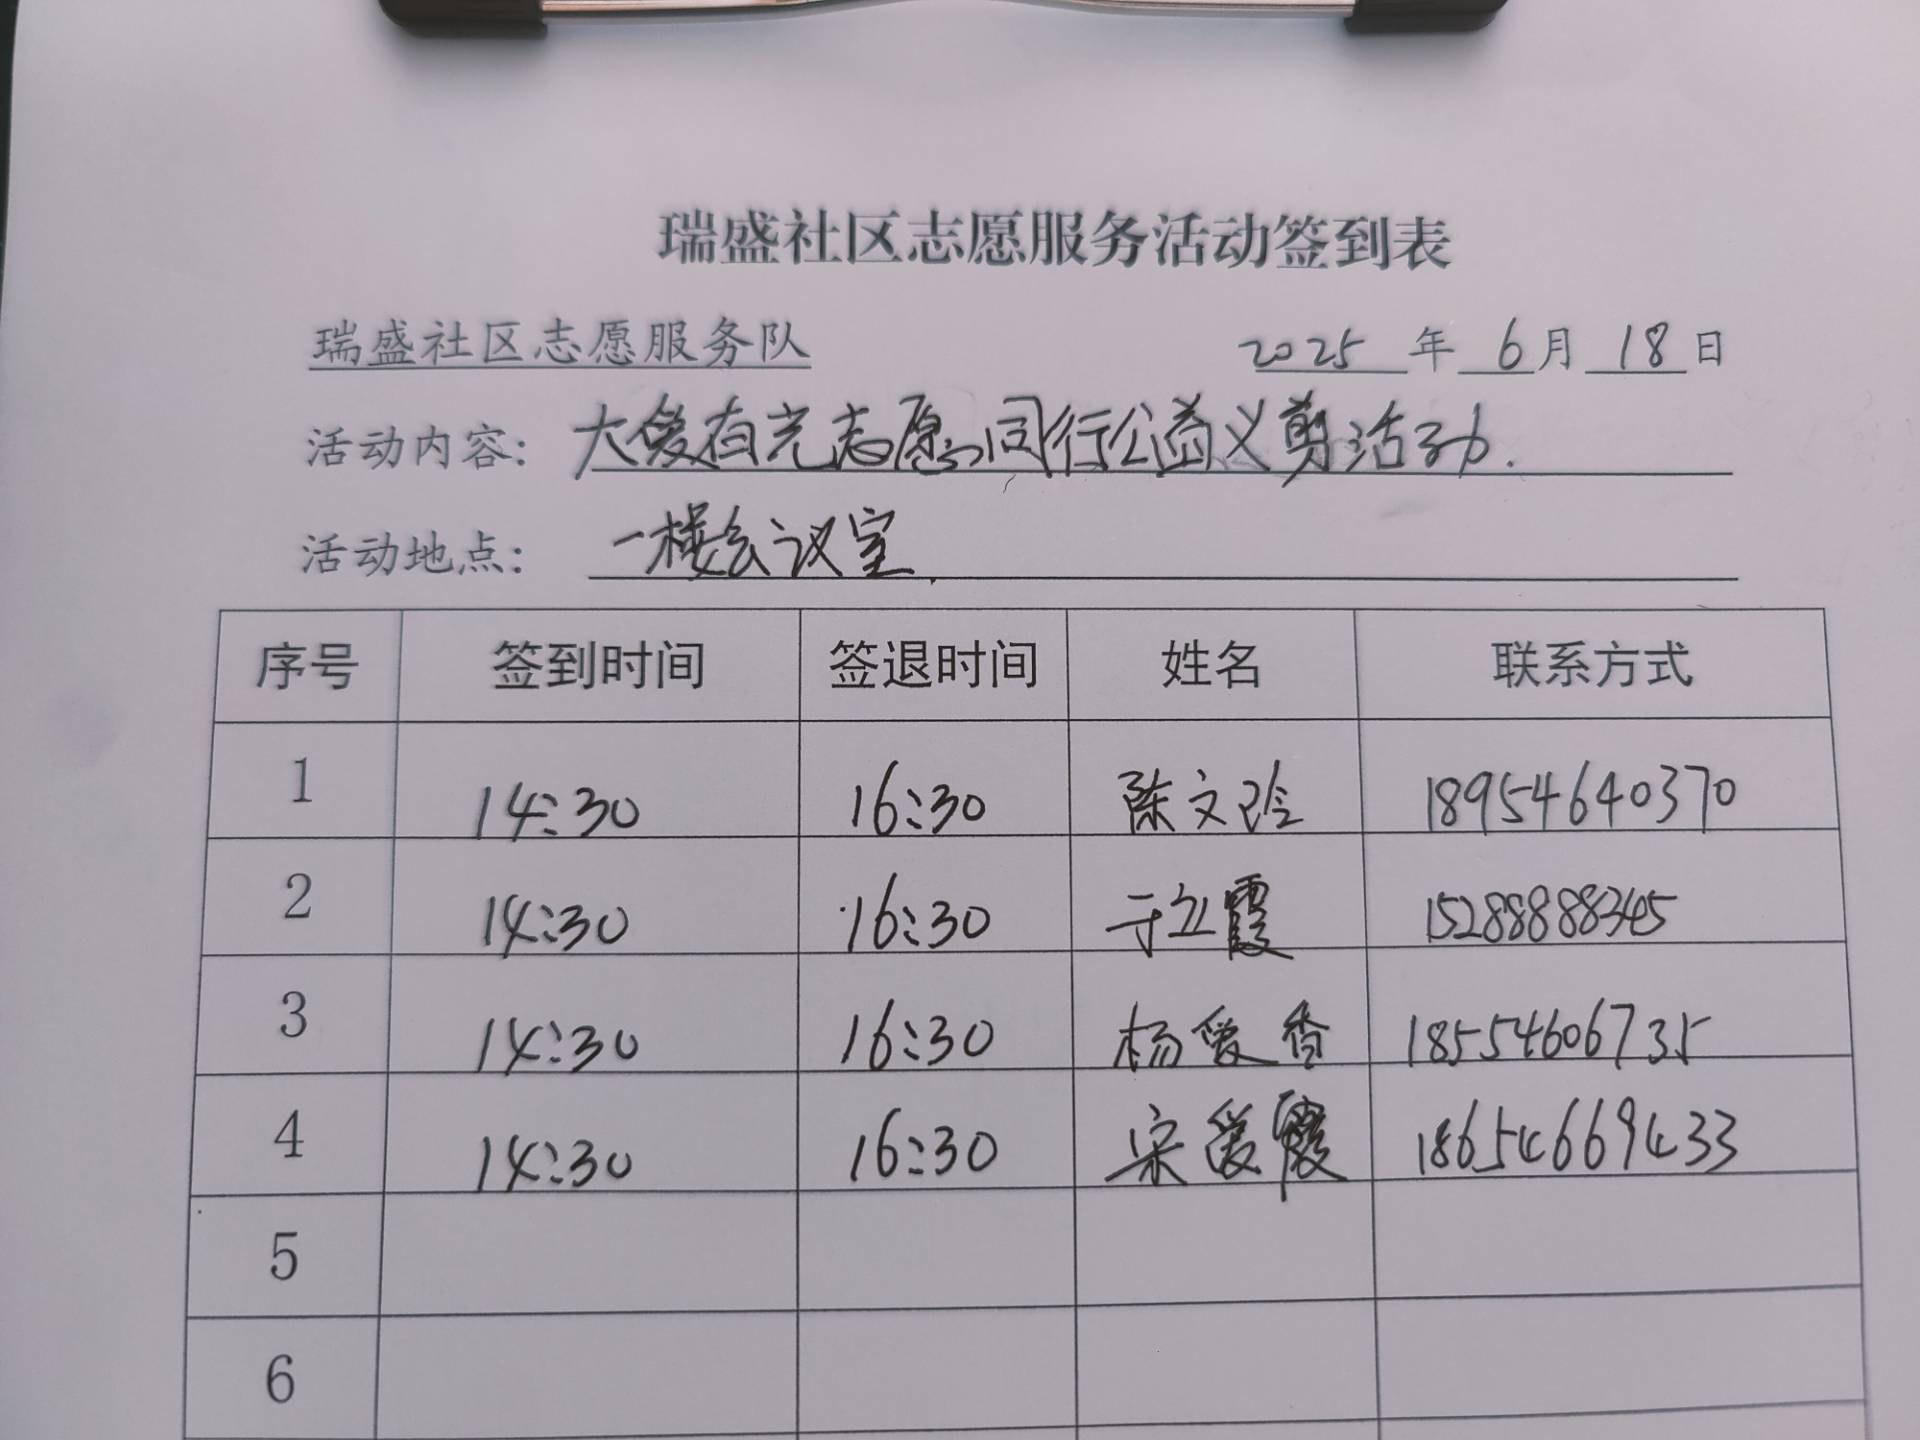 瑞盛社区志愿服务活动签到表
瑞盛社区志愿服务队 2025 年 6 月 18 日
活动内容: 大爱有光志愿同行公益义剪活动.
活动地点: 一楼会议室
序号 签到时间 签退时间 姓名 联系方式
1 14:30 16:30 陈文玲 18954640370
2 14:30 16:30 于立霞 15288888345
3 14:30 16:30 杨爱香 18554606735
4 14:30 16:30 宋爱霞 18654669433
5
6